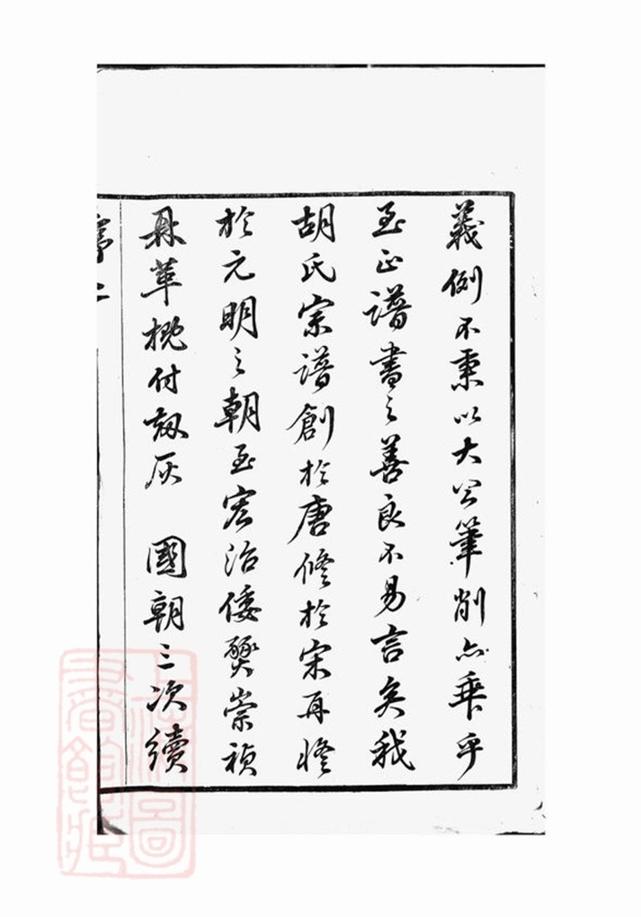 義例不秉以大公筆削亦乖乎
至正譜書之善良不易言矣我
胡氏宗譜創於唐修於宋再修
於元明之朝至宏治倭燹崇禎
鼎革概付劫灰　國朝三次續
序二
上海圖書館藏